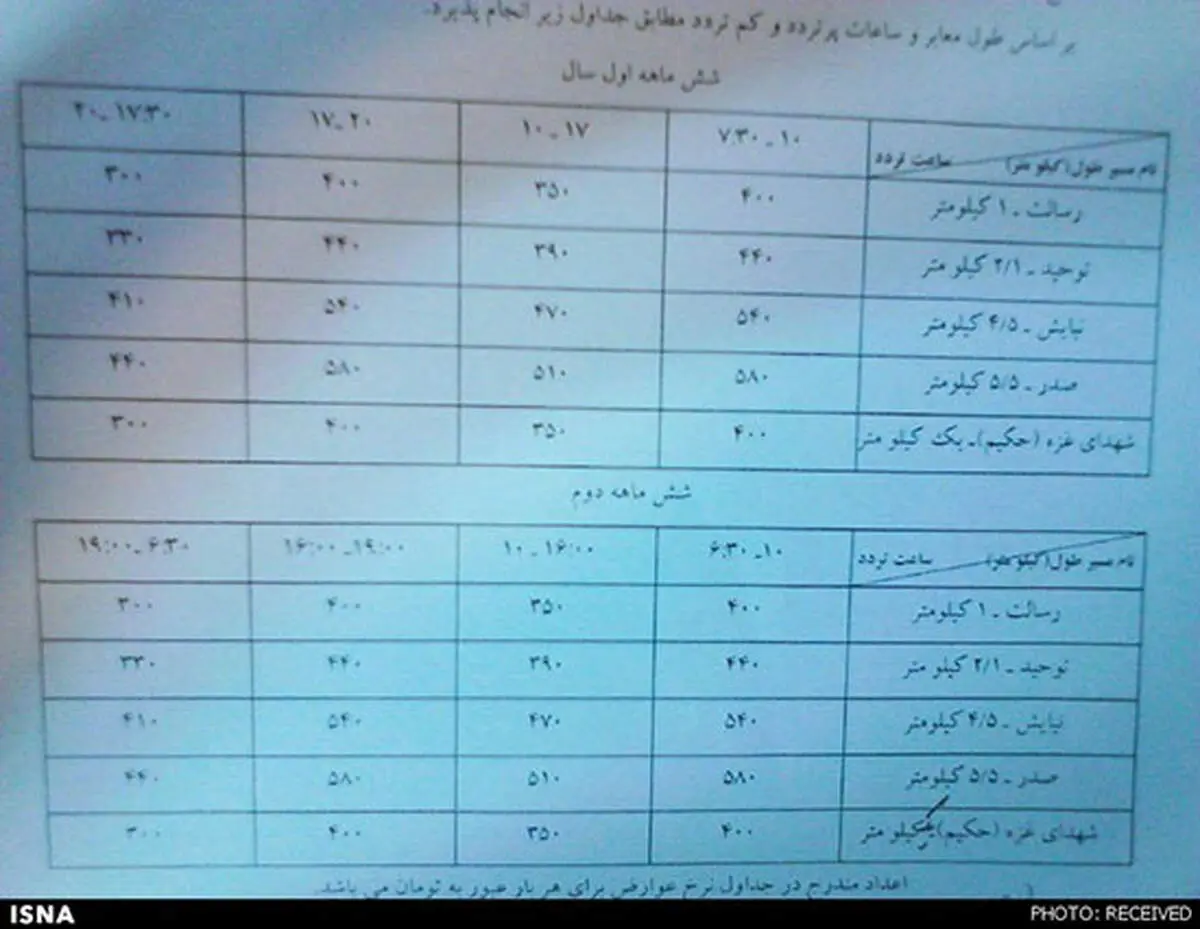 بر اساس طول معابر و ساعات پرتردد و کم تردد مطابق جداول زیر انجام پذیرد.
شش ماهه اول سال
نام مسیر طول(کیلو متر) ساعت تردد ۱۰ ـ ۷:۳۰ ۱۷ ـ ۱۰ ۲۰ ـ ۱۷ ۱۷:۳۰ ـ ۲۰
رسالت ـ ۱ کیلومتر ۴۰۰ ۳۵۰ ۴۰۰ ۳۰۰
توحید ـ ۲/۱ کیلو متر ۴۴۰ ۳۹۰ ۴۴۰ ۳۳۰
نیایش ـ ۴/۵ کیلومتر ۵۴۰ ۴۷۰ ۵۴۰ ۴۱۰
صدر ـ ۵/۵ کیلومتر ۵۸۰ ۵۱۰ ۵۸۰ ۴۴۰
شهدای غزه (حکیم)ـ یک کیلو متر ۴۰۰ ۳۵۰ ۴۰۰ ۳۰۰
شش ماهه دوم
نام مسیر طول(کیلو متر) ساعت تردد ۱۰ ـ ۶:۳۰ ۱۶:۰۰ ـ ۱۰ ۱۹:۰۰ ـ ۱۶:۰۰ ۶:۳۰ ـ ۱۹:۰۰
رسالت ـ ۱ کیلومتر ۴۰۰ ۳۵۰ ۴۰۰ ۳۰۰
توحید ـ ۲/۱ کیلو متر ۴۴۰ ۳۹۰ ۴۴۰ ۳۳۰
نیایش ـ ۴/۵ کیلومتر ۵۴۰ ۴۷۰ ۵۴۰ ۴۱۰
صدر ـ ۵/۵ کیلومتر ۵۸۰ ۵۱۰ ۵۸۰ ۴۴۰
شهدای غزه (حکیم) یک کیلو متر ۴۰۰ ۳۵۰ ۴۰۰ ۳۰۰
اعداد مندرج در جداول نرخ عوارض برای هر بار عبور به تومان می باشد.
ISNA PHOTO: RECEIVED